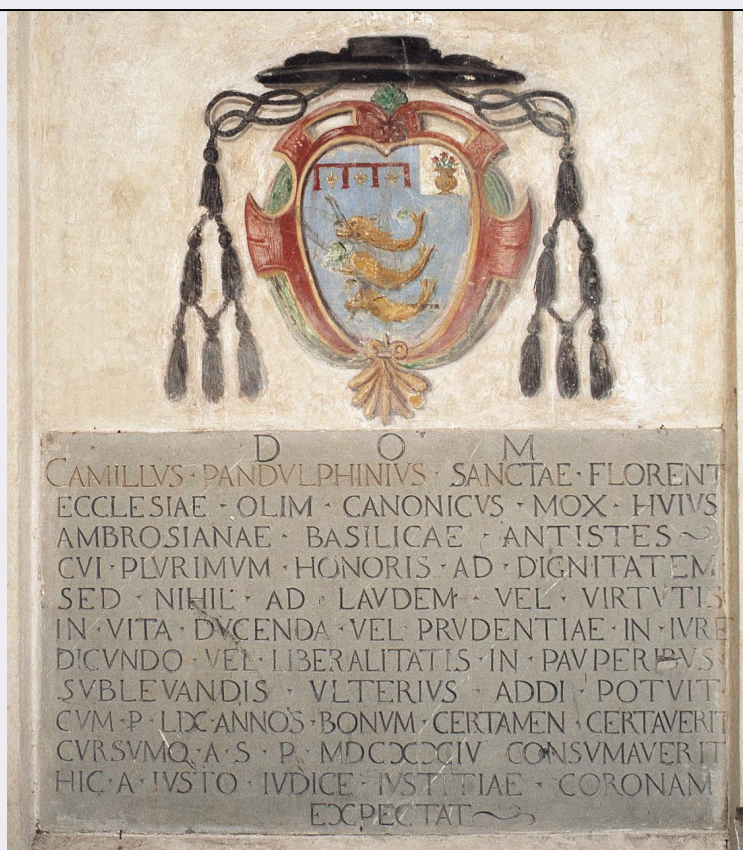 D O M
CAMILLVS · PANDVLPHINIVS · SANCTAE · FLORENT
ECCLESIAE · OLIM · CANONICVS · MOX · HVIVS
AMBROSIANAE · BASILICAE · ANTISTES
CVI · PLVRIMVM · HONORIS · AD · DIGNITATEM
SED · NIHIL · AD · LAVDEM · VEL · VIRTVTIS
IN · VITA · DVCENDA · VEL · PRVDENTIAE · IN · IVRE
DICVNDO · VEL · LIBERALITATIS · IN · PAVPERIBVS
SVBLEVANDIS · VLTERIVS · ADDI · POTVIT
CVM · P · LIX · ANNOS · BONVM · CERTAMEN · CERTAVERIT
CVRSVMQ · A · S · P · MDCXXXCIV CONSVMAVERIT
HIC · A · IVSTO · IVDICE · IVSTITIAE · CORONAM
EXPECTAT